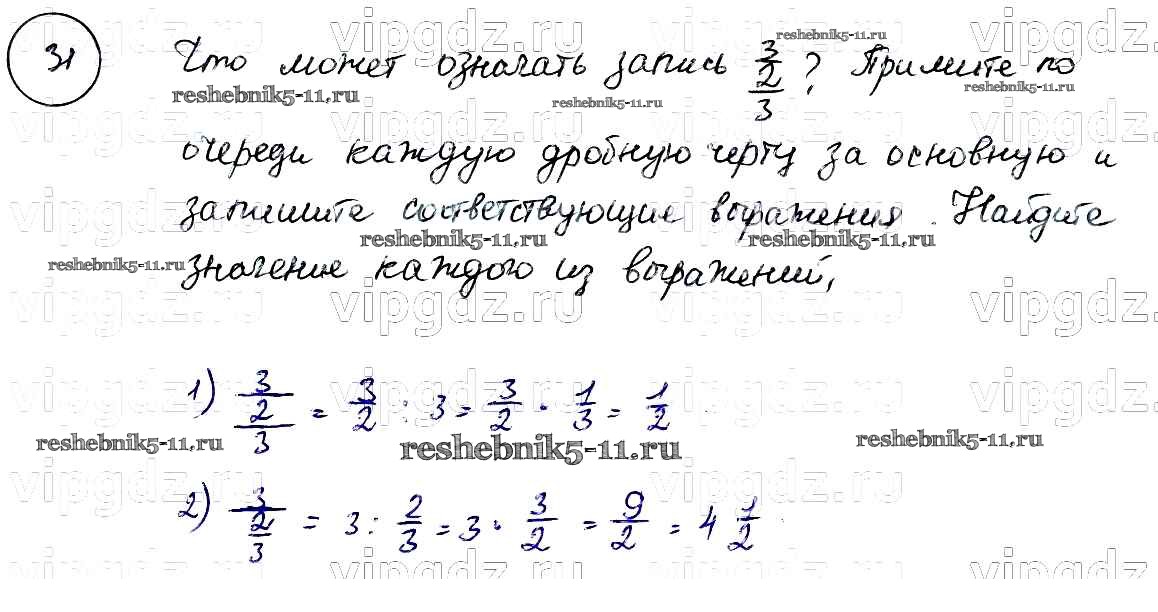 31 Что может означать запись 3/2/3 ? Примите по
очереди каждую дробную черту за основную и
запишите соответствующие выражения. Найдите
значение каждого из выражений,
1) 3/2/3 = 3/2 : 3 = 3/2 · 1/3 = 1/2
2) 3/2/3 = 3 : 2/3 = 3 · 3/2 = 9/2 = 4 1/2
vipgdz.ru
reshebnik5-11.ru